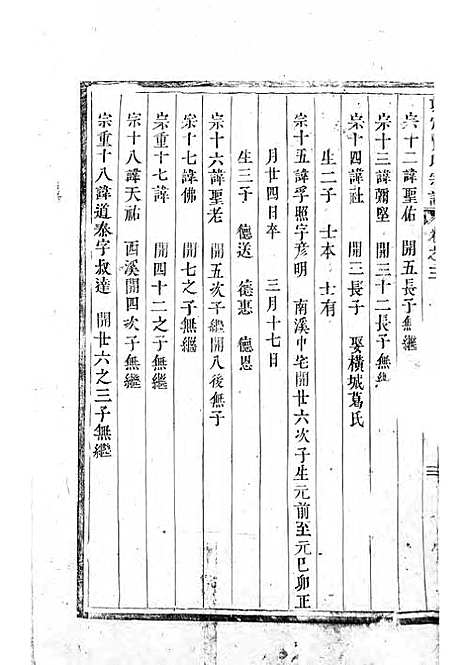 宗譜 卷之三
宗十二諱聖佑 開五長子無繼
宗十三諱彌堅 開三十二長子無繼
宗十四諱社 開二長子 娶橫城葛氏
生二子 士本 士有
宗十五諱孚照字彥明 南溪中宅開廿六次子生元前至元巳卯正
月廿四日卒 三月十七日
生三子 德送 德惠 德恩
宗十六諱聖老 開五次子繼開八後無子
宗十七諱佛 開七之子無繼
宗重十七諱 開四十二之子無繼
宗十八諱天祐 西溪開四次子無繼
宗重十八諱道泰字叔達 開廿六之三子無繼